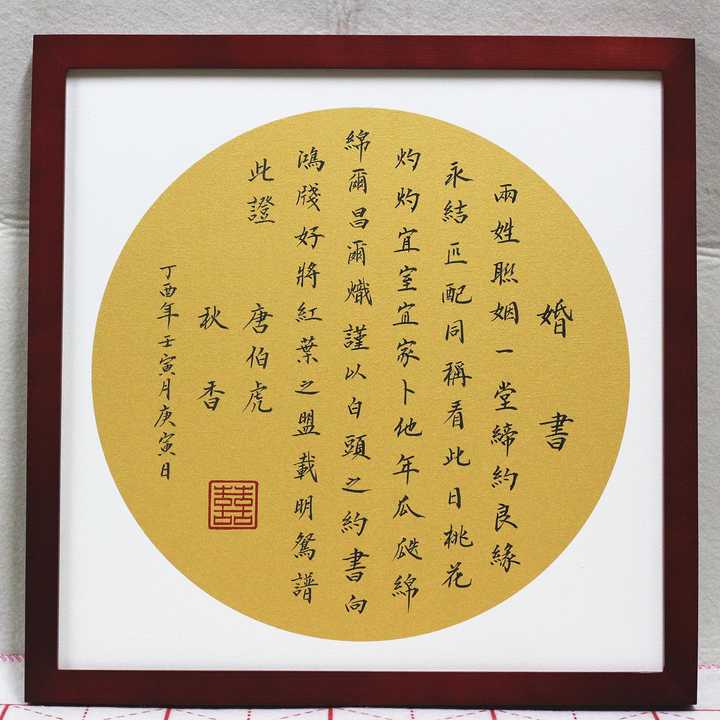 婚書
兩姓聯姻一堂締約良緣
永結匹配同稱看此日桃花
灼灼宜室宜家卜他年瓜瓞綿
綿爾昌爾熾謹以白頭之約書向
鴻牋好將紅葉之盟載明鴛譜
此證
唐伯虎
秋香
丁酉年壬寅月庚寅日
囍